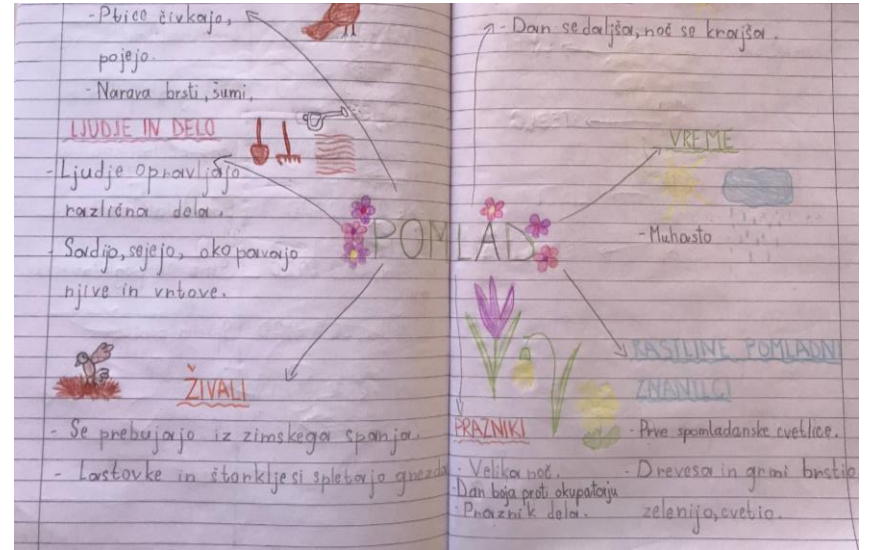 - Ptice čivkajo,
pojejo.
- Narava brsti, šumi,
LJUDJE IN DELO
- Ljudje opravljajo
različna dela.
- Sadijo, sejejo, okopavajo
njive in vrtove.
ŽIVALI
- Se prebujajo iz zimskega spanja.
- Lastovke in štorklje si spletajo gnezda
POMLAD
- Dan se daljša, noč se krajša.
VREME
- Muhasto
RASTLINE POMLADNI
ZNANILCI
- Prve spomladanske cvetlice.
- Drevesa in grmi brstijo
zelenijo, cvetio.
PRAZNIKI
- Velika noč.
- Dan boja proti okupatorju
- Praznik dela.